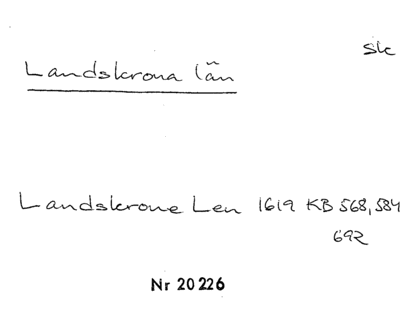 Sk
Landskrona län
Landskrone Len 1619 KB 568, 584
692
Nr 20226